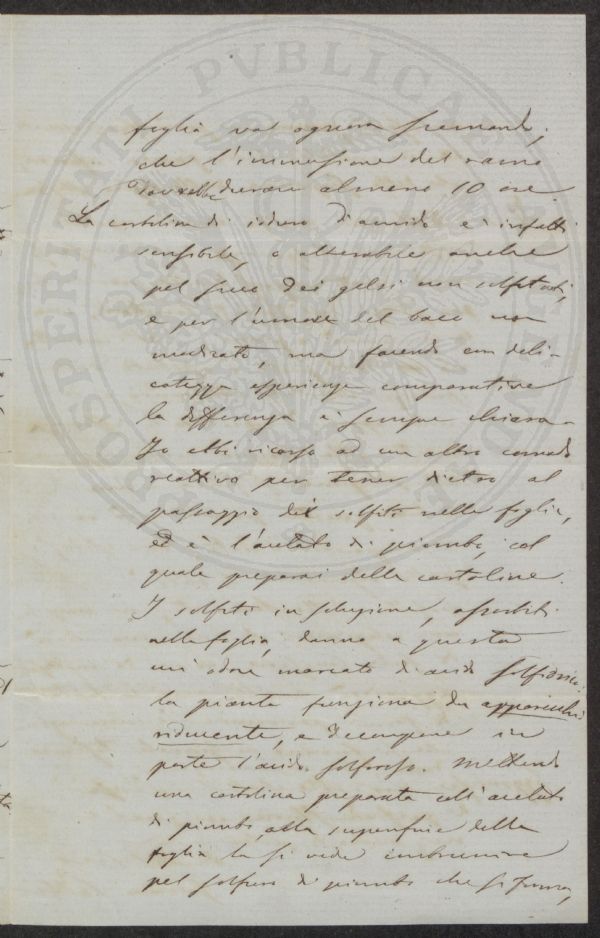 foglia va ognora scemando;
che l'immersione del ramo
dovrebbe durare almeno 10 ore.
La cartolina di ioduro d'amido è infatti
sensibile, o alterabile anche
pel succo dei gelsi non solfitati,
e per l'umore del baco non
medicato, ma facendo con deli-
catezza esperienze comparative
la differenza è sempre chiara.
Io ebbi ricorso ad un altro comodo
reattivo per tener dietro al
passaggio dei solfiti nelle foglie,
ed è l'acetato di piombo, col
quale preparai delle cartoline.
I solfiti in soluzione, assorbiti
nella foglia, danno a questa
un'odore marcato di acido solfidrico.
la pianta funziona da apparecchio
riducente, e decompone in
parte l'acido solforoso. Mettendo
una cartolina preparata coll'acetato
di piombo, alla superficie della
foglia la si vede imbrunire
pel solfuro di piombo che si forma,
PROSPERITATI PVBLICAE AVGENDAE